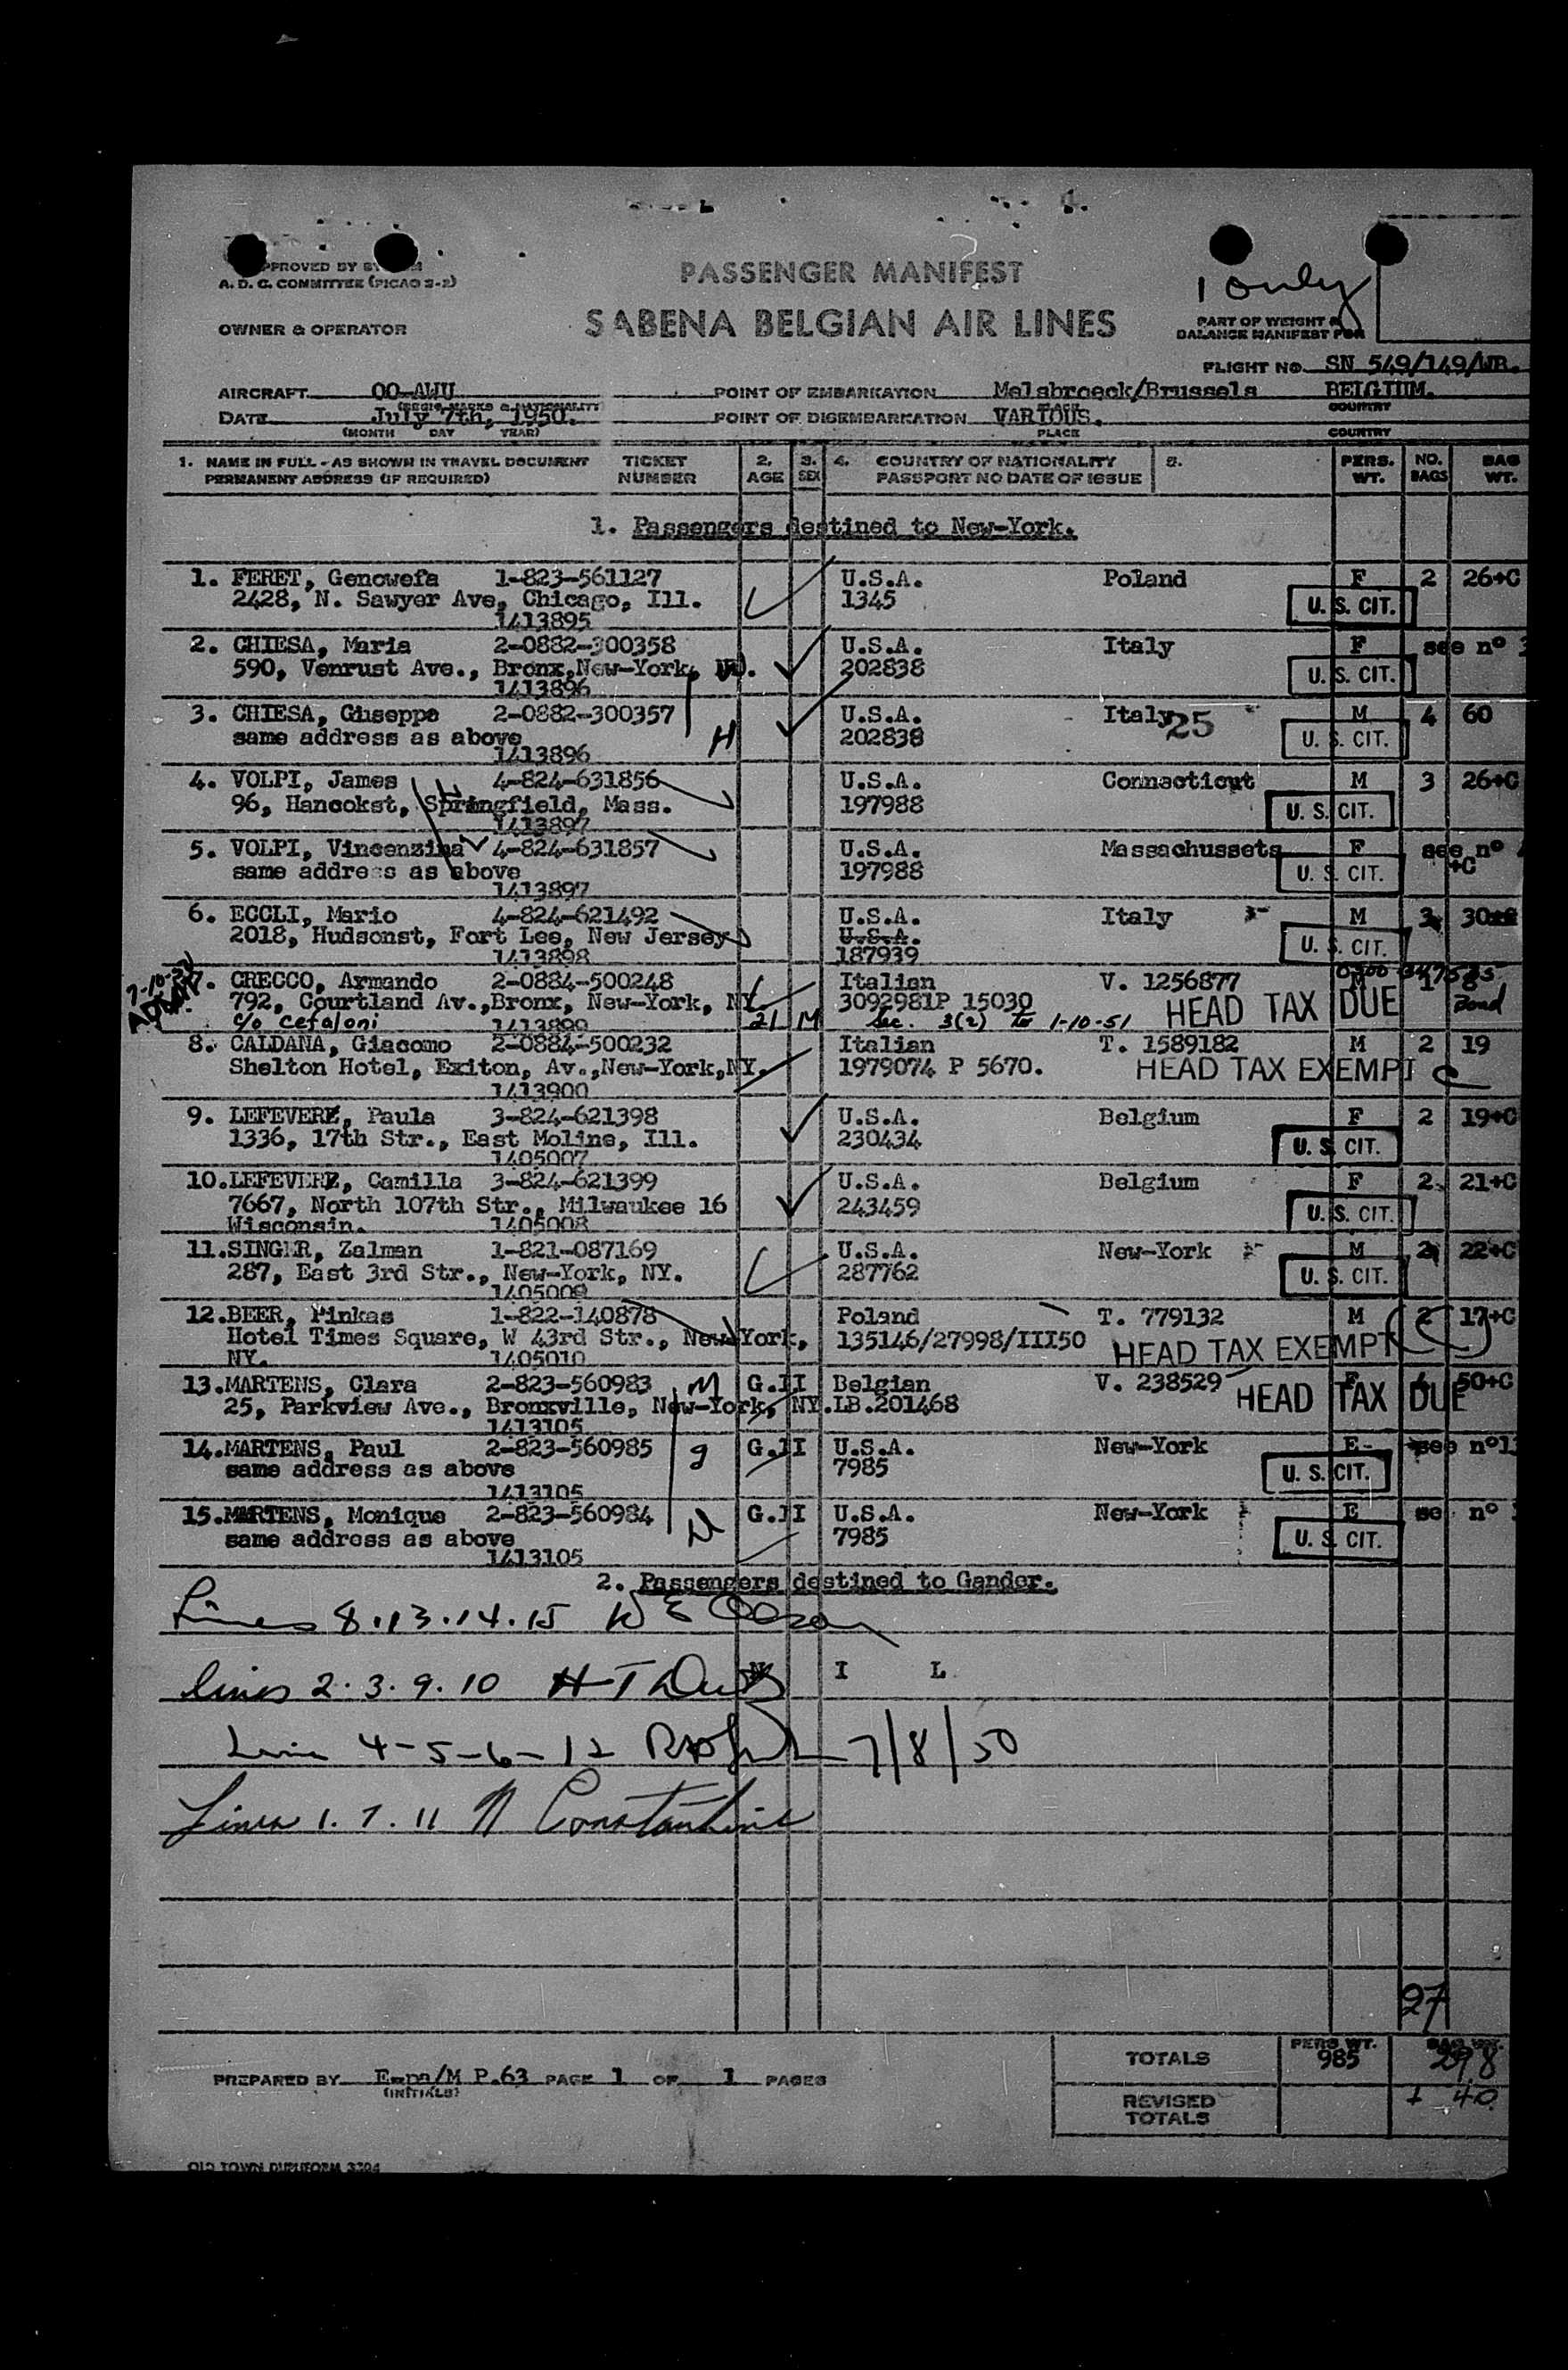 APPROVED BY
A. D. C. COMMITTEE (PICAO 2-2)
PASSENGER MANIFEST
1 only
OWNER & OPERATOR
SABENA BELGIAN AIR LINES
PART OF WEIGHT &
BALANCE MANIFEST FOR
FLIGHT NO SN 549/149/WB.
AIRCRAFT OO-AWU POINT OF EMBARKATION Melsbroeck/Brussels BELGIUM.
(REGIS. MARKS & NATIONALITY) PLACE COUNTRY
DATE July 7th, 1950. POINT OF DISEMBARKATION VARIOUS.
(MONTH DAY YEAR) PLACE COUNTRY
1. NAME IN FULL - AS SHOWN IN TRAVEL DOCUMENT TICKET 2. 3. 4. COUNTRY OF NATIONALITY 5. PERS. NO. BAG
PERMANENT ADDRESS (IF REQUIRED) NUMBER AGE SEX PASSPORT NO DATE OF ISSUE WT. BAGS WT.
1. Passengers destined to New-York.
1. FERET, Genowefa 1-823-561127 U.S.A. Poland F 2 26+C
2428, N. Sawyer Ave, Chicago, Ill. 1345 U. S. CIT.
1413895
2. CHIESA, Maria 2-0882-300358 U.S.A. Italy F see n°
590, Venrust Ave., Bronx,New-York, W. 202838 U. S. CIT.
1413896
3. CHIESA, Giuseppe 2-0882-300357 U.S.A. Italy 25 M 4 60
same address as above H 202838 U. S. CIT.
1413896
4. VOLPI, James 4-824-631856 U.S.A. Connecticut M 3 26+C
96, Hancokst, Springfield, Mass. 197988 U. S. CIT.
1413897
5. VOLPI, Vincenzina 4-824-631857 U.S.A. Massachussets F see n°
same address as above 197988 U. S. CIT. +C
1413897
6. ECCLI, Mario 4-824-621492 U.S.A. Italy M 3 30
2018, Hudsonst, Fort Lee, New Jersey U.S.A. U. S. CIT.
1413898 187939
7. CRECCO, Armando 2-0884-500248 Italian V. 1256877 M 1 8
792, Courtland Av.,Bronx, New-York, NY. 3092981P 15030 HEAD TAX DUE
c/o Cefaloni 1413899 21 M Sec. 3(2) to 1-10-51
8. CALDANA, Giacomo 2-0884-500232 Italian T. 1589182 M 2 19
Shelton Hotel, Exiton, Av.,New-York,NY. 1979074 P 5670. HEAD TAX EXEMPT
1413900
9. LEFEVERE, Paula 3-824-621398 U.S.A. Belgium F 2 19+C
1336, 17th Str., East Moline, Ill. 230434 U. S. CIT.
1405007
10.LEFEVERE, Camilla 3-824-621399 U.S.A. Belgium F 2 21+C
7667, North 107th Str., Milwaukee 16 243459 U. S. CIT.
Wisconsin. 1405008
11.SINGER, Zalman 1-821-087169 U.S.A. New-York M 2 22+C
287, East 3rd Str., New-York, NY. 287762 U. S. CIT.
1405009
12.BEER, Pinkas 1-822-140878 Poland T. 779132 M 2 17+C
Hotel Times Square, W 43rd Str., New-York, 135146/27998/III50 HEAD TAX EXEMPT
NY. 1405010
13.MARTENS, Clara 2-823-560983 M G.II Belgian V. 238529 F 4 50+C
25, Parkview Ave., Bronxville, New-York, NY.LB.201468 HEAD TAX DUE
1413105
14.MARTENS, Paul 2-823-560985 G.II U.S.A. New-York E see n°
same address as above 7985 U. S. CIT.
1413105
15.MARTENS, Monique 2-823-560984 G.II U.S.A. New-York E se n°
same address as above 7985 U. S. CIT.
1413105
2. Passengers destined to Gander.
Lines 8.13.14.15 W E Olson
N I L
lines 2.3.9.10 H T
Line 4-5-6-12 7/8/50
Lines 1.7.11 N Constantine
27
TOTALS PERS WT. 985 BAG WT. 298
PREPARED BY P.63 PAGE 1 OF 1 PAGES
(INITIALS)
REVISED TOTALS + 40
OLD TOWN DUPLIFORM 3304